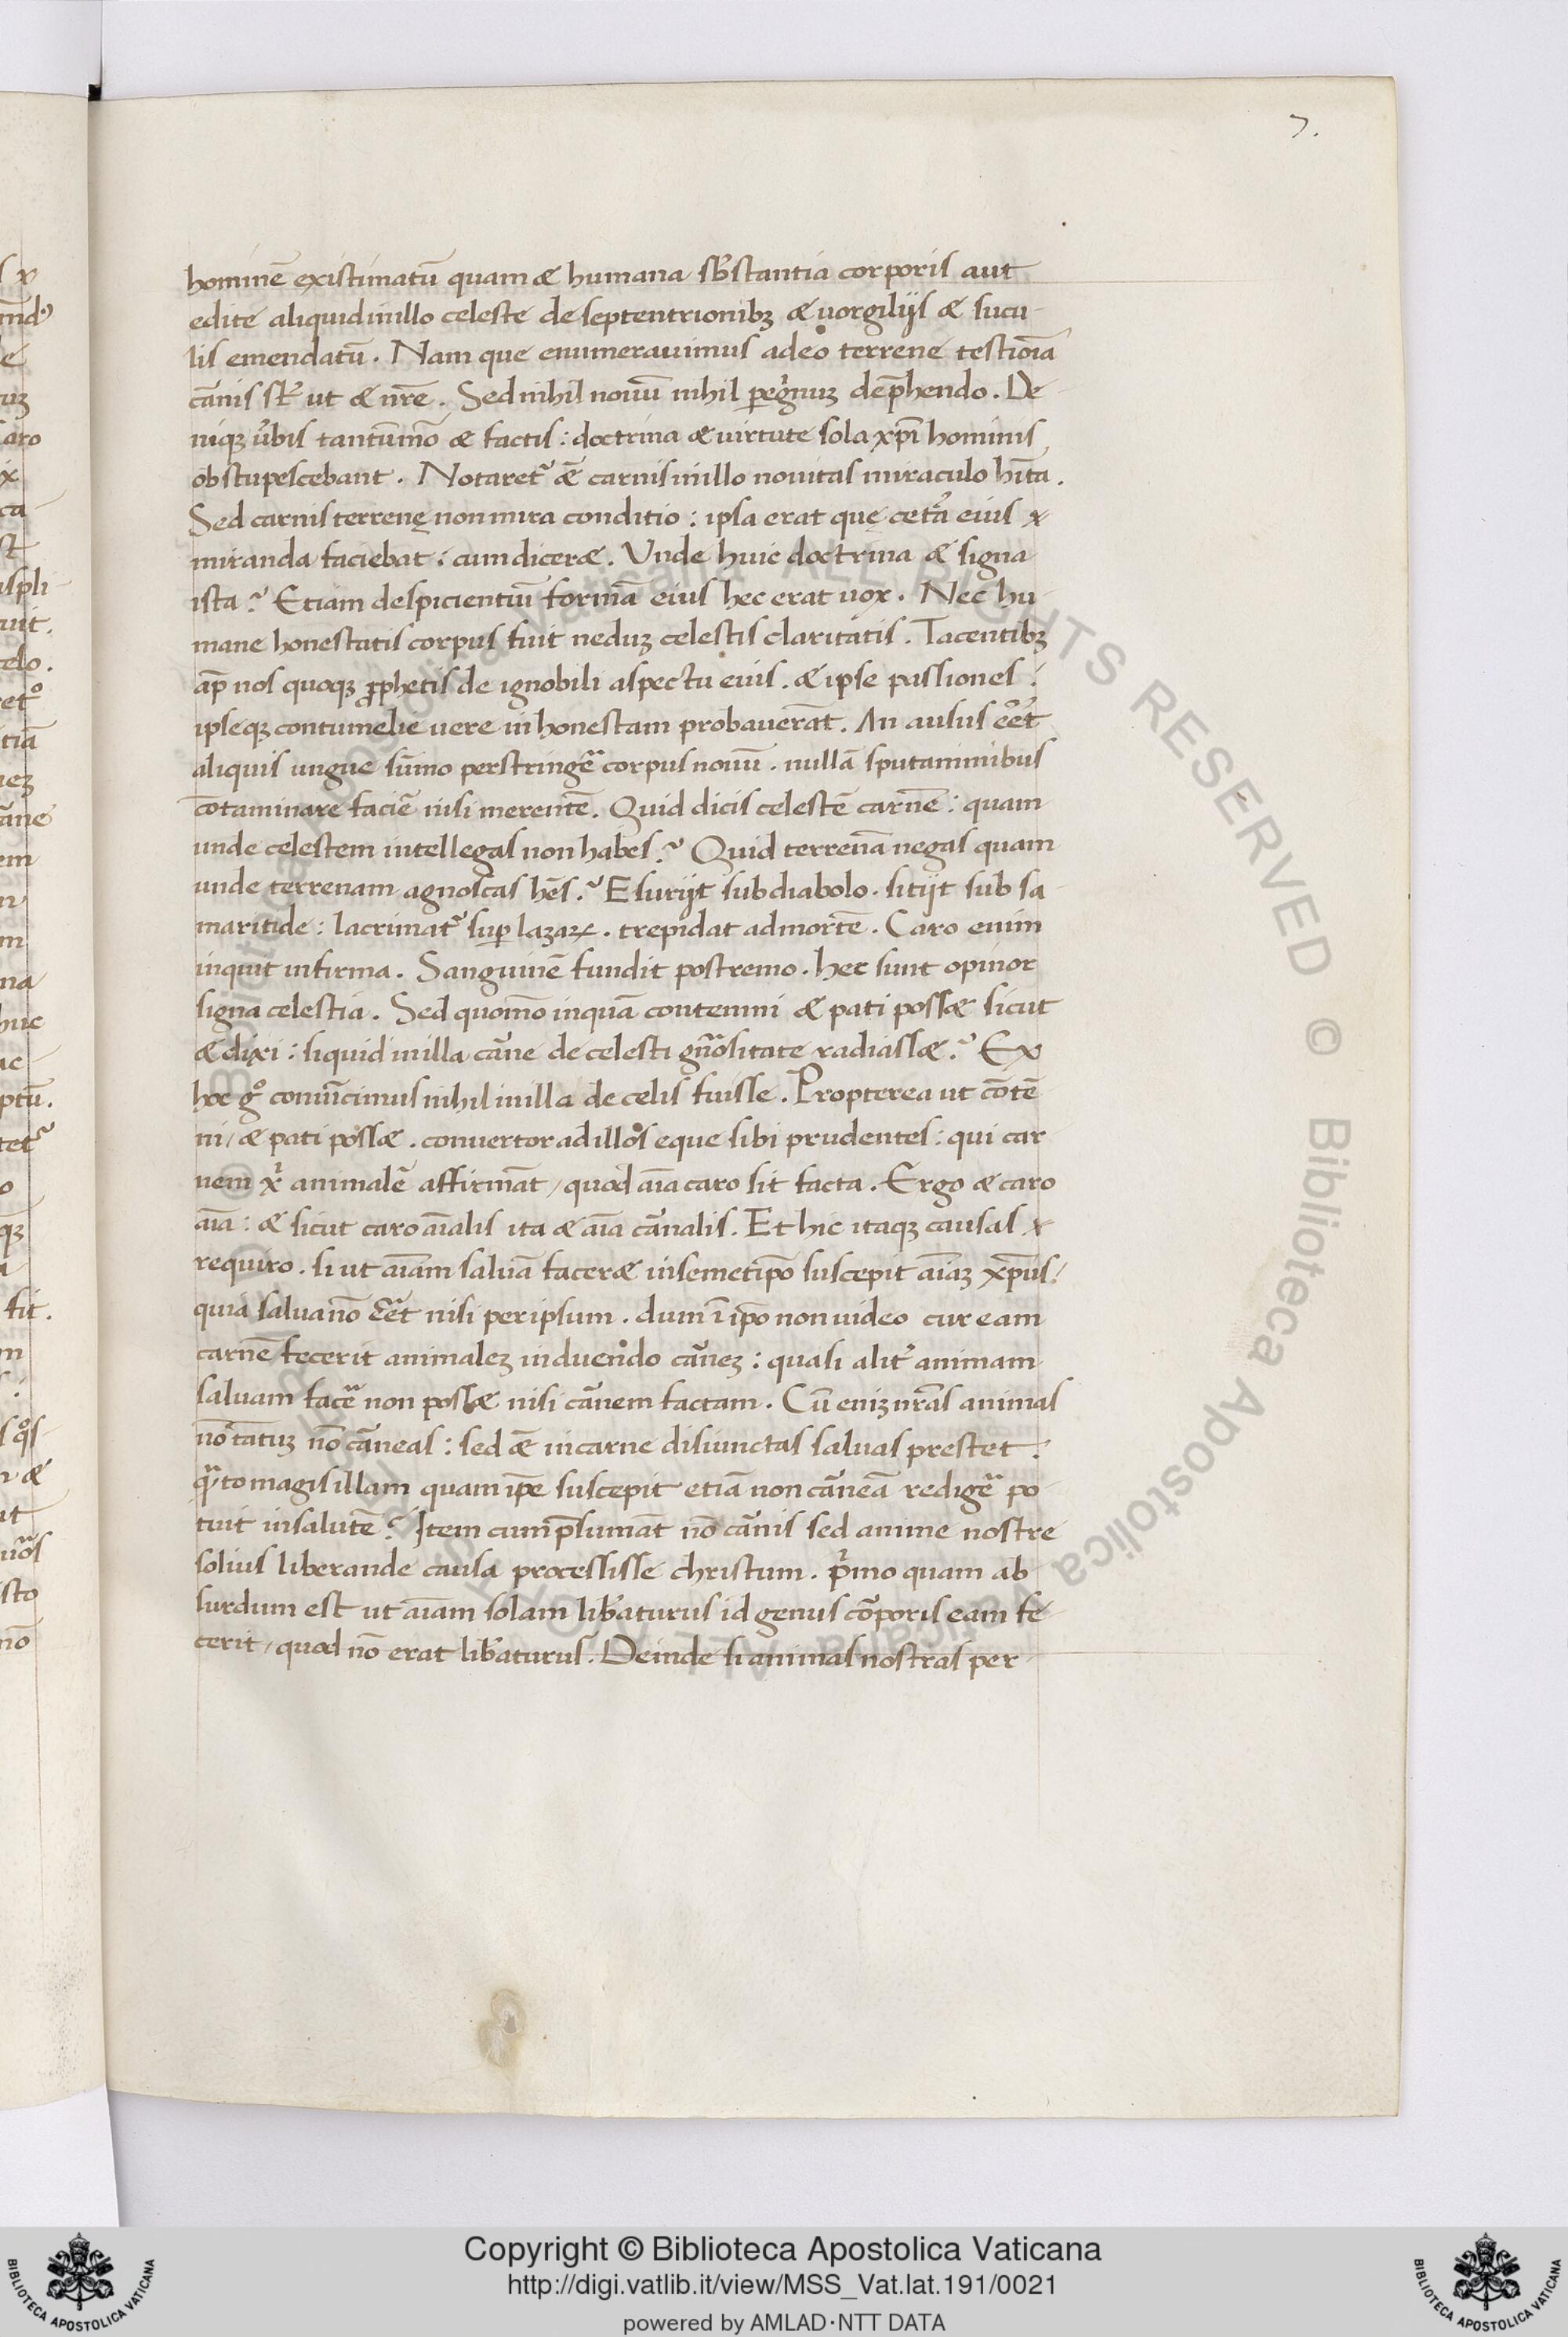 7.
hominē existimatū quam & humana sb̄stantia corporis aut
edite aliquid in illo celeste de septentrionibꝫ & uorgilijs & sucu-
lis emendatū. Nam que enumerauimus adeo terrene testiōia
cãnis sᵗ ut & nr̄e. Sed nihil nouū nihil peregͥnuꝫ dep̄hendo. De-
niqꝫ ủbis tantūmō & factis: doctrina & virtute sola xp̄i hominis
obstupescebant. Notaretᷣ ǣ carnis in illo nouitas miraculo hīta.
Sed carnis terrenę non mira conditio: ipsa erat quę cetᷣa eius x
miranda faciebat: cum dicer&. Unde huic doctrina & signa
ista? Etiam despicientiū formā eius hec erat uox. Nec hu-
mane honestatis corpus fuit neduꝫ celestis claritatis. Tacentibꝫ
ap̄ nos quoqꝫ ꝓphetis de ignobili aspectu euis. & ipse passiones:
ipseqꝫ contumelie vere inhonestam probauerāt. An ausus eēt
aliquis ungue sūmo perstringeᷓ corpus nouū. nullā sputaminibus
cōtaminare faciē nisi merentē. Quid dicis celestē carnē: quam
unde celestem intellegas non habes? Quid terrenā negas quam
unde terrenam agnoscas hēs? Esurijt sub diabolo. sitijt sub sa-
maritide: lacrimatᷣ suꝑ lazaꝝ. trepidat ad mortē. Caro enim
inquit infirma. Sanguinē fundit postremo. hec sunt opinor
signa celestia. Sed quomō inquā contemni & pati poss& sicut
& dixi: siquid in illa cãne de celesti gn̄ositate radiass&? Ex
hoc gͦ conuīcimus nihil in illa de celis fuisse. Propterea ut cōtē
ni/ & pati poss&. convertor ad illos eque sibi prudentes: qui car
nem xͥ animalē affirmāt/ quod aīa caro sit facta. Ergo & caro
aīa: & sicut caro aīalis ita & aīa cãnalis. Et hic itaqꝫ causas x
requiro. si ut aīam saluā facer& in semetip̄o suscepit aīaꝫ xp̄us/
quia salua nō eēt nisi per ipsum. dum ī ip̄o non uideo cur eam
carnē fecerit animaleꝫ induendo cãneꝫ: quasi alitᷣ animam
saluam faceᷓ non poss& nisi cãnem factam. Cū eniꝫ nr̄as animas
nō tātuꝫ nō cãneas: sed ǣ in carne disiunctas saluas prestet:
qᷓto magis illam quam ip̄e suscepit etiā non cãneā redigeᷓ po
tuit in salutē? Item cum p̄sumāt nō cãnis sed anime nostre
solius liberande causa processisse christum. pͥmo quam ab
surdum est ut aīam solam lib̄aturus id genus cōporis eam fe-
cerit/ quod nō erat lib̄aturus. Deinde si animas nostras per
Copyright © Biblioteca Apostolica Vaticana
http://digi.vatlib.it/view/MSS_Vat.lat.191/0021
powered by AMLAD·NTT DATA